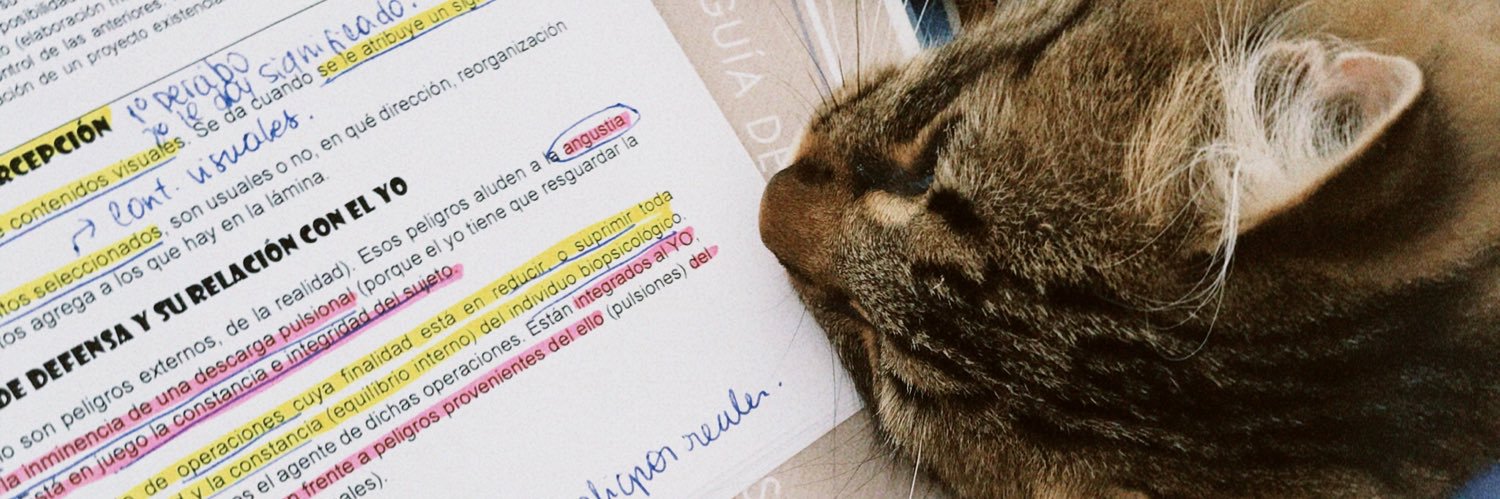 posibilidad
o (elaboración
ntrol de las anteriores.
ación de un proyecto existencia
RCEPCIÓN
1º percibo
le doy significado.
e contenidos visuales. Se da cuando se le atribuye un sig
cont. visuales.
tos seleccionados, son usuales o no, en qué dirección, reorganización
ios agrega a los que hay en la lámina.
DE DEFENSA Y SU RELACIÓN CON EL YO
o son peligros externos, de la realidad). Esos peligros aluden a la angustia
la inminencia de una descarga pulsional (porque el yo tiene que resguardar la
stá en juego la constancia e integridad del sujeto.
de operaciones cuya finalidad está en reducir, o suprimir toda
d y la constancia (equilibrio interno) del individuo biopsicológico.
es el agente de dichas operaciones. Están integrados al YO,
n frente a peligros provenientes del ello (pulsiones) del
ales).
reales.
GUÍA DE
S